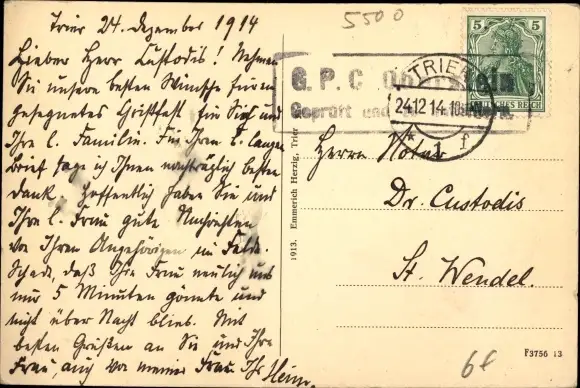 Trier 24. Dezember 1914
Lieber Herr Custodis! Nehmen
Sie unsere besten Wünsche für ein
gesegnetes Christfest für Sich und
Ihre l. Familie. Für Ihren l. langen
Brief sage ich Ihnen nachträglich besten
Dank. Hoffentlich haben Sie und
Ihre l. Frau gute Nachrichten
von Ihren Angehörigen im Felde.
Schade, daß Ihre Frau neulich uns
nur 5 Minuten gönnte und
nicht über Nacht blieb. Mit
besten Grüßen an Sie und Ihre
Frau, auch von meiner Frau Ihr
5500
5 5
DEUTSCHES REICH
TRIER
24.12.14.10
* 1 f
G. P. C.
Geprüft und
Herrn Notar
Dr. Custodis
St. Wendel.
1913. Emmerich Herzig, Trier
F3756 13
6f